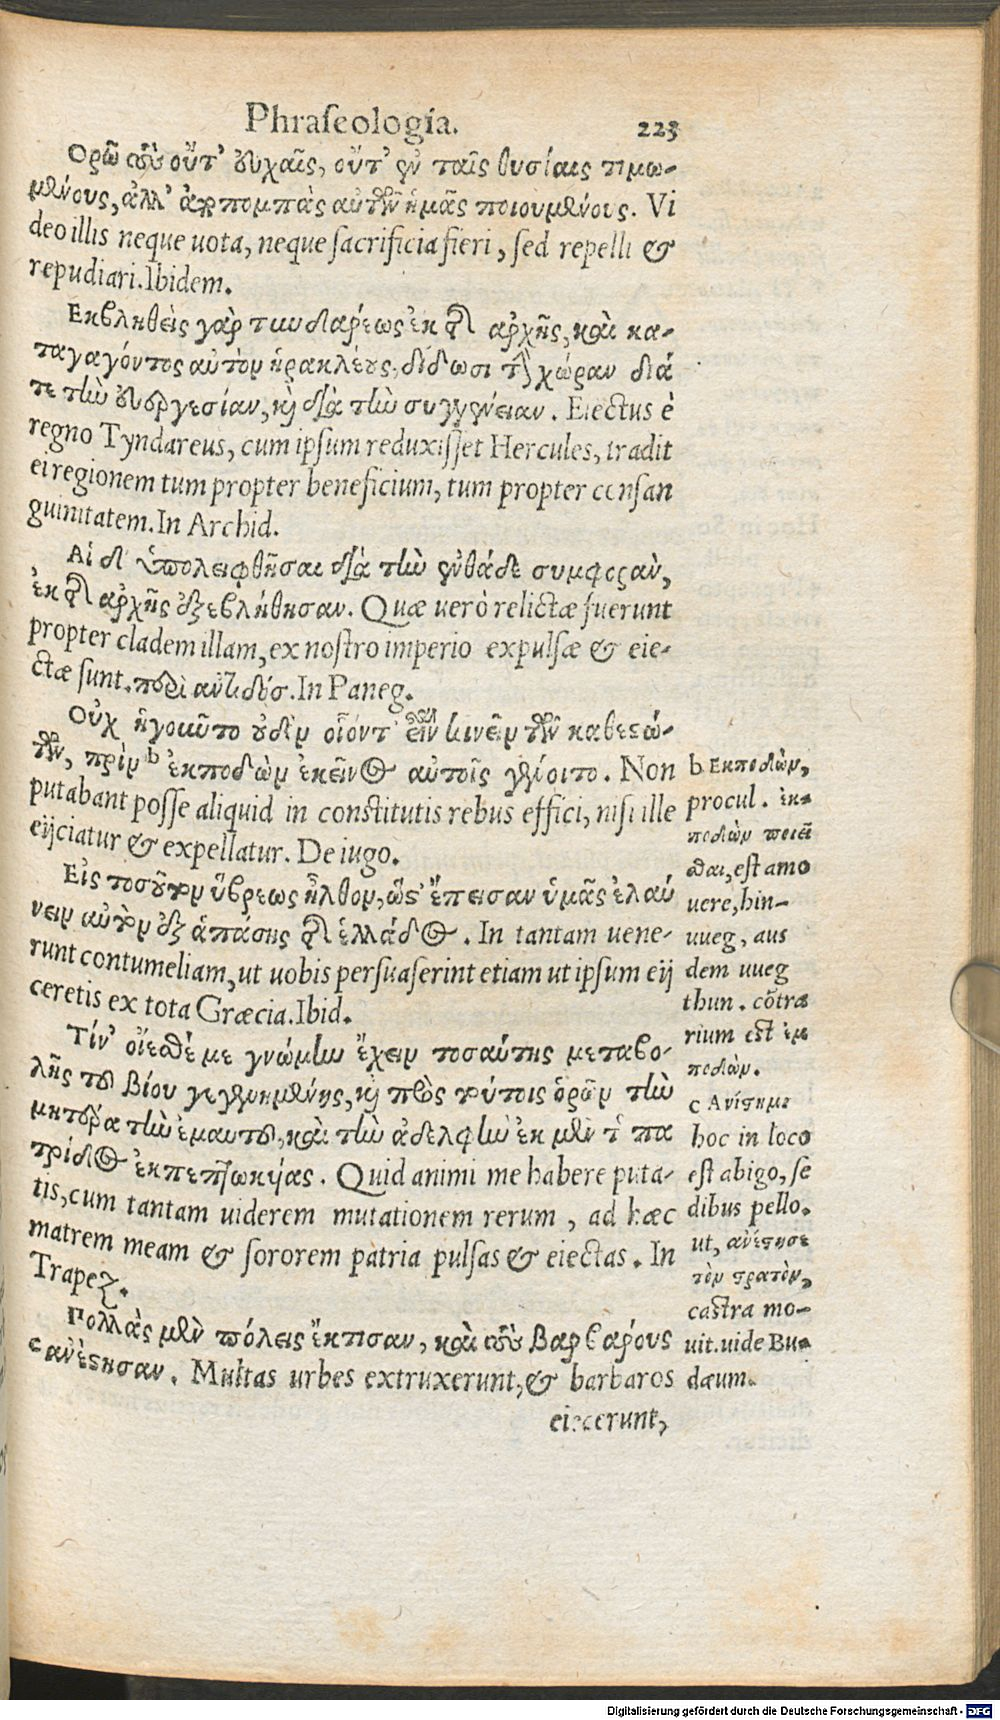 Phraseologia. 223
Ορῶ τοὺς οὔτ' εὐχαῖς, οὔτ' ἐν ταῖς θυσίαις τιμω-
μένους, ἀλλ' ἀποπομπὰς αὐτῶν ἡμᾶς ποιουμένους. Vi
deo illis neque uota, neque sacrificia fieri, sed repelli &
repudiari. Ibidem.
Εκβληθεὶς γὰρ τυνδαρέως ἐκ τῆς ἀρχῆς, καὶ κα-
ταγαγόντος αὐτὸν ἡρακλέους, δίδωσι τὴν χώραν διά
τε τὴν εὐεργεσίαν, καὶ διὰ τὴν συγγένειαν. Eiectus è
regno Tyndareus, cum ipsum reduxisset Hercules, tradit
ei regionem tum propter beneficium, tum propter consan
guinitatem. In Archid.
Αἱ δ' ὑπολειφθῆσαι διὰ τὴν ἐνθάδε συμφορὰν,
ἐκ τῆς ἀρχῆς ἐξεβλήθησαν. Quæ uerò relictæ fuerunt
propter cladem illam, ex nostro imperio expulsæ & eie-
ctæ sunt. περὶ ἀντιδόσ. In Paneg.
Οὐχ ἡγοῦντο οὐδὲν οἷόντ' εἶναι κινεῖν τῶν καθεστώ-
των, πρὶν b ἐκποδὼν ἐκεῖνος αὐτοῖς γένοιτο. Non
putabant posse aliquid in constitutis rebus effici, nisi ille
eijciatur & expellatur. De iugo.
Εἰς τοσοῦτον ὕβρεως ἦλθον, ὥστ' ἔπεισαν ὑμᾶς ἐλαύ
νειν αὐτὸν ἐξ ἁπάσης τῆς ἑλλάδος. In tantam uene-
runt contumeliam, ut uobis persuaserint etiam ut ipsum eij
ceretis ex tota Græcia. Ibid.
Τίν' οἴεσθέ με γνώμην ἔχειν τοσαύτης μεταβο-
λῆς τοῦ βίου γεγενημένης, καὶ πρὸς τούτοις ὁρῶν τὴν
μητέρα τὴν ἐμαυτοῦ, καὶ τὴν ἀδελφὴν ἐκ μὲν τῆς πα
τρίδος ἐκπεπτωκυίας. Quid animi me habere puta-
tis, cum tantam uiderem mutationem rerum, ad hæc
matrem meam & sororem patria pulsas & eiectas. In
Trapez.
Πολλὰς μὲν πόλεις ἔκτισαν, καὶ τοὺς βαρβάρους
c ἀνέστησαν. Multas urbes extruxerunt, & barbaros
eiecerunt,
b Εκποδὼν,
procul. ἐκ-
ποδὼν ποιεῖ
σθαι, est amo
uere, hin-
uueg, aus
dem uueg
thun. cõtra
rium est ἐμ
ποδὼν.
c Ανίστημι
hoc in loco
est abigo, se
dibus pello.
ut, ἀνέστησε
τὸν στρατὸν,
castra mo-
uit. uide Bu-
dæum.
Digitalisierung gefördert durch die Deutsche Forschungsgemeinschaft - DFG